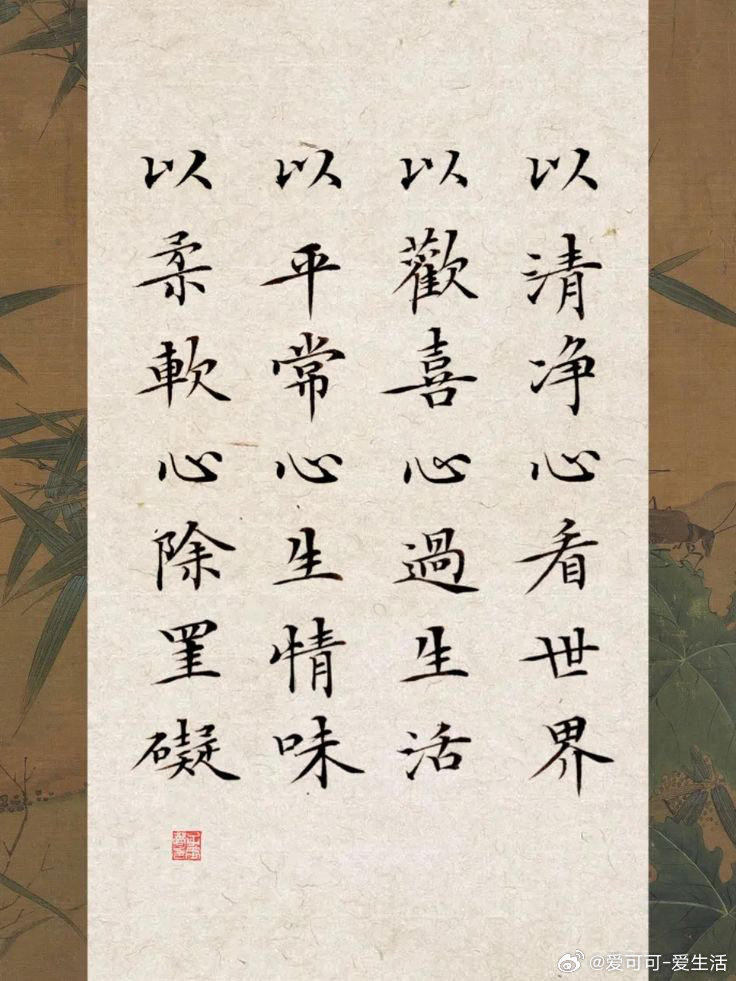 以清净心看世界
以歡喜心過生活
以平常心生情味
以柔軟心除罣礙
@爱可可-爱生活